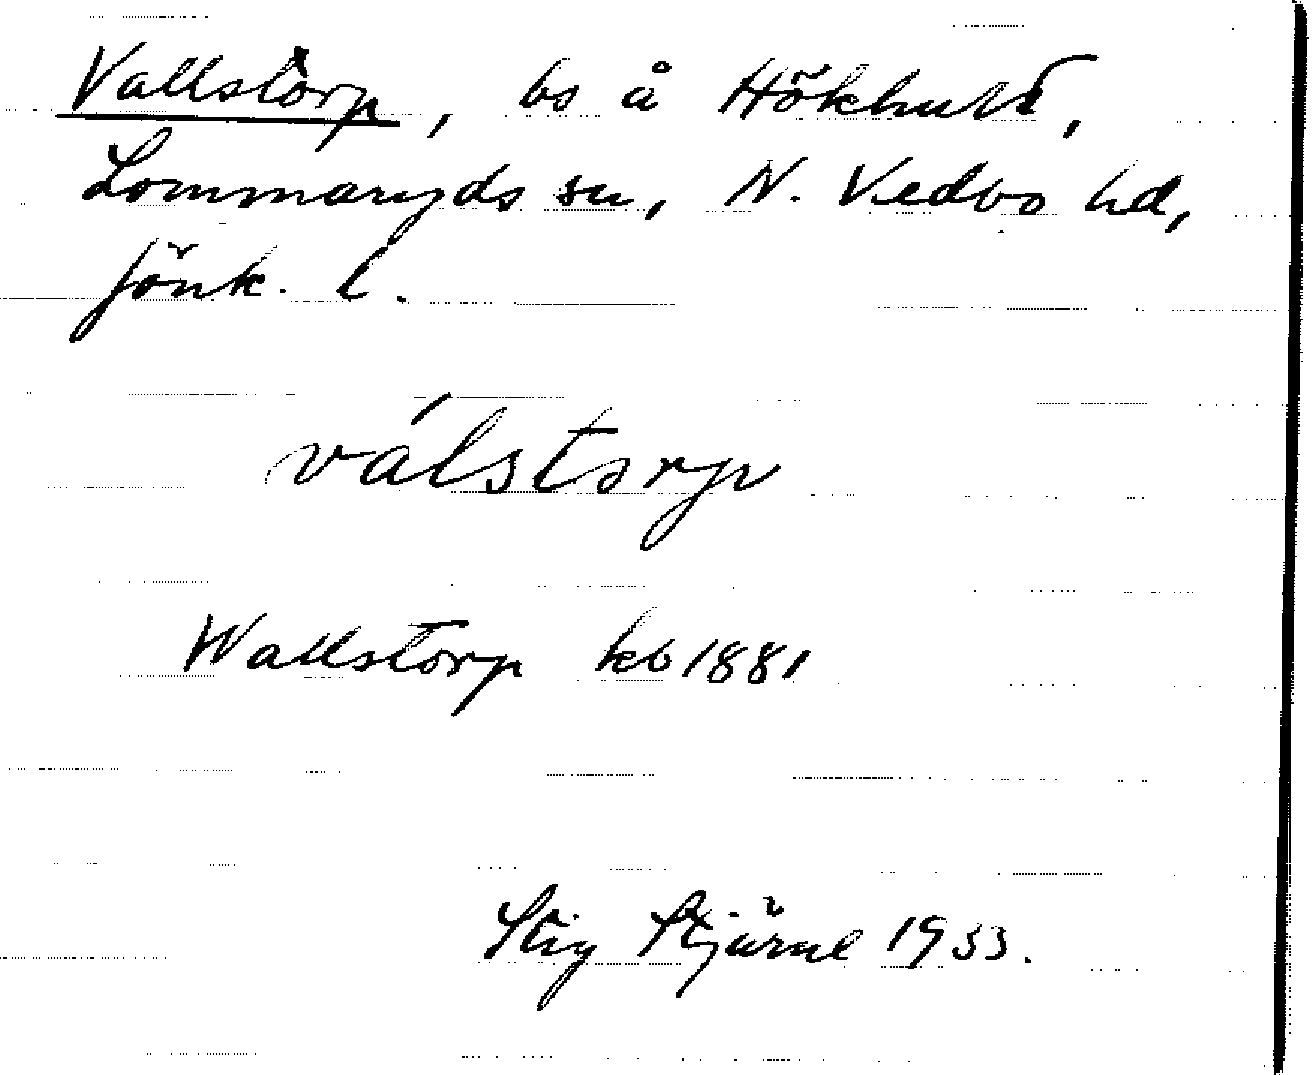 Vallstorp, bs å Hökhult,
Lommaryds sn, N. Vedbo hd,
Jönk. l.
válstorp
Wallstorp kb 1881
Stig Stjärne 1933.